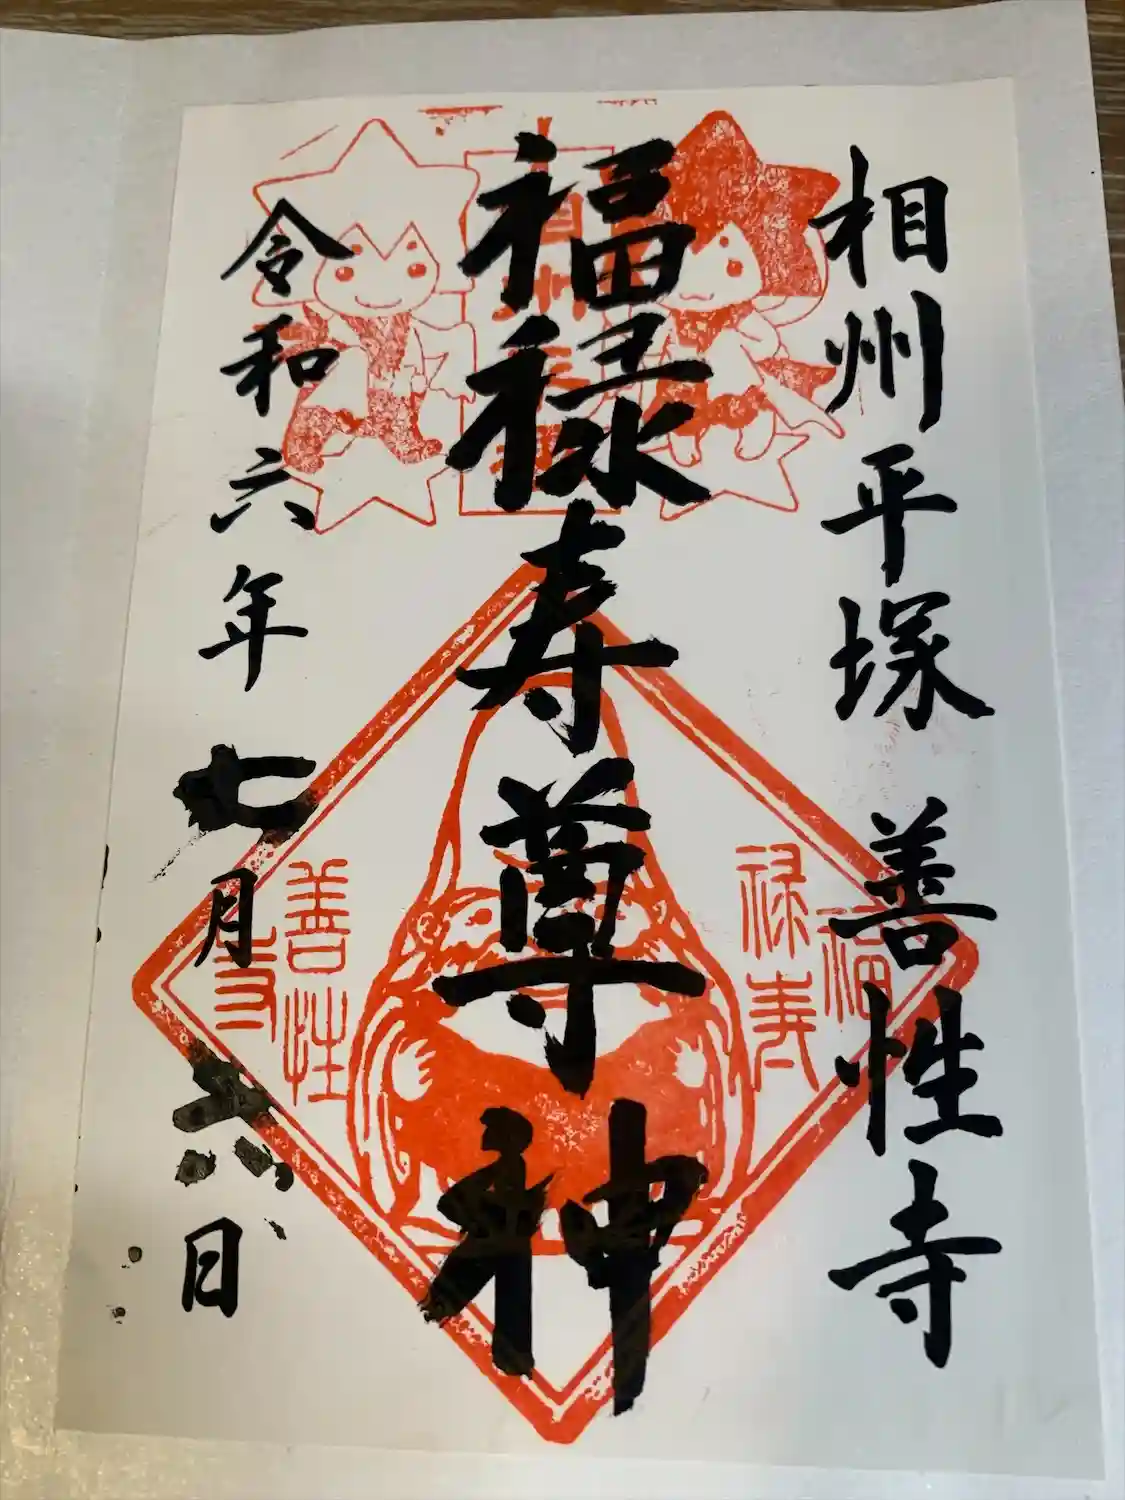 相州平塚 善性寺
福禄寿尊神
令和六年七月六日
福
禄寿
善性
寺